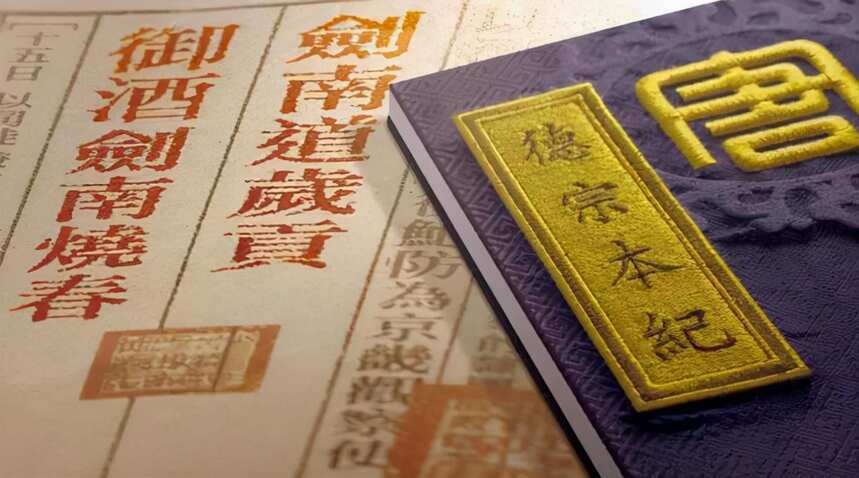 唐
德宗本紀
鮑防為京畿觀察使
劍南道歲貢
御酒劍南燒春
十五日 以